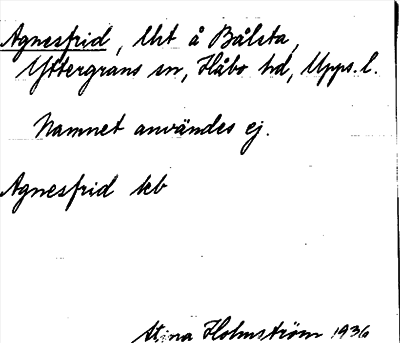 Agnesfrid, lht å Bålsta,
Yttergrans sn, Håbo hd, Upps. l.
Namnet användes ej.
Agnesfrid keb
Stina Holmström 1936